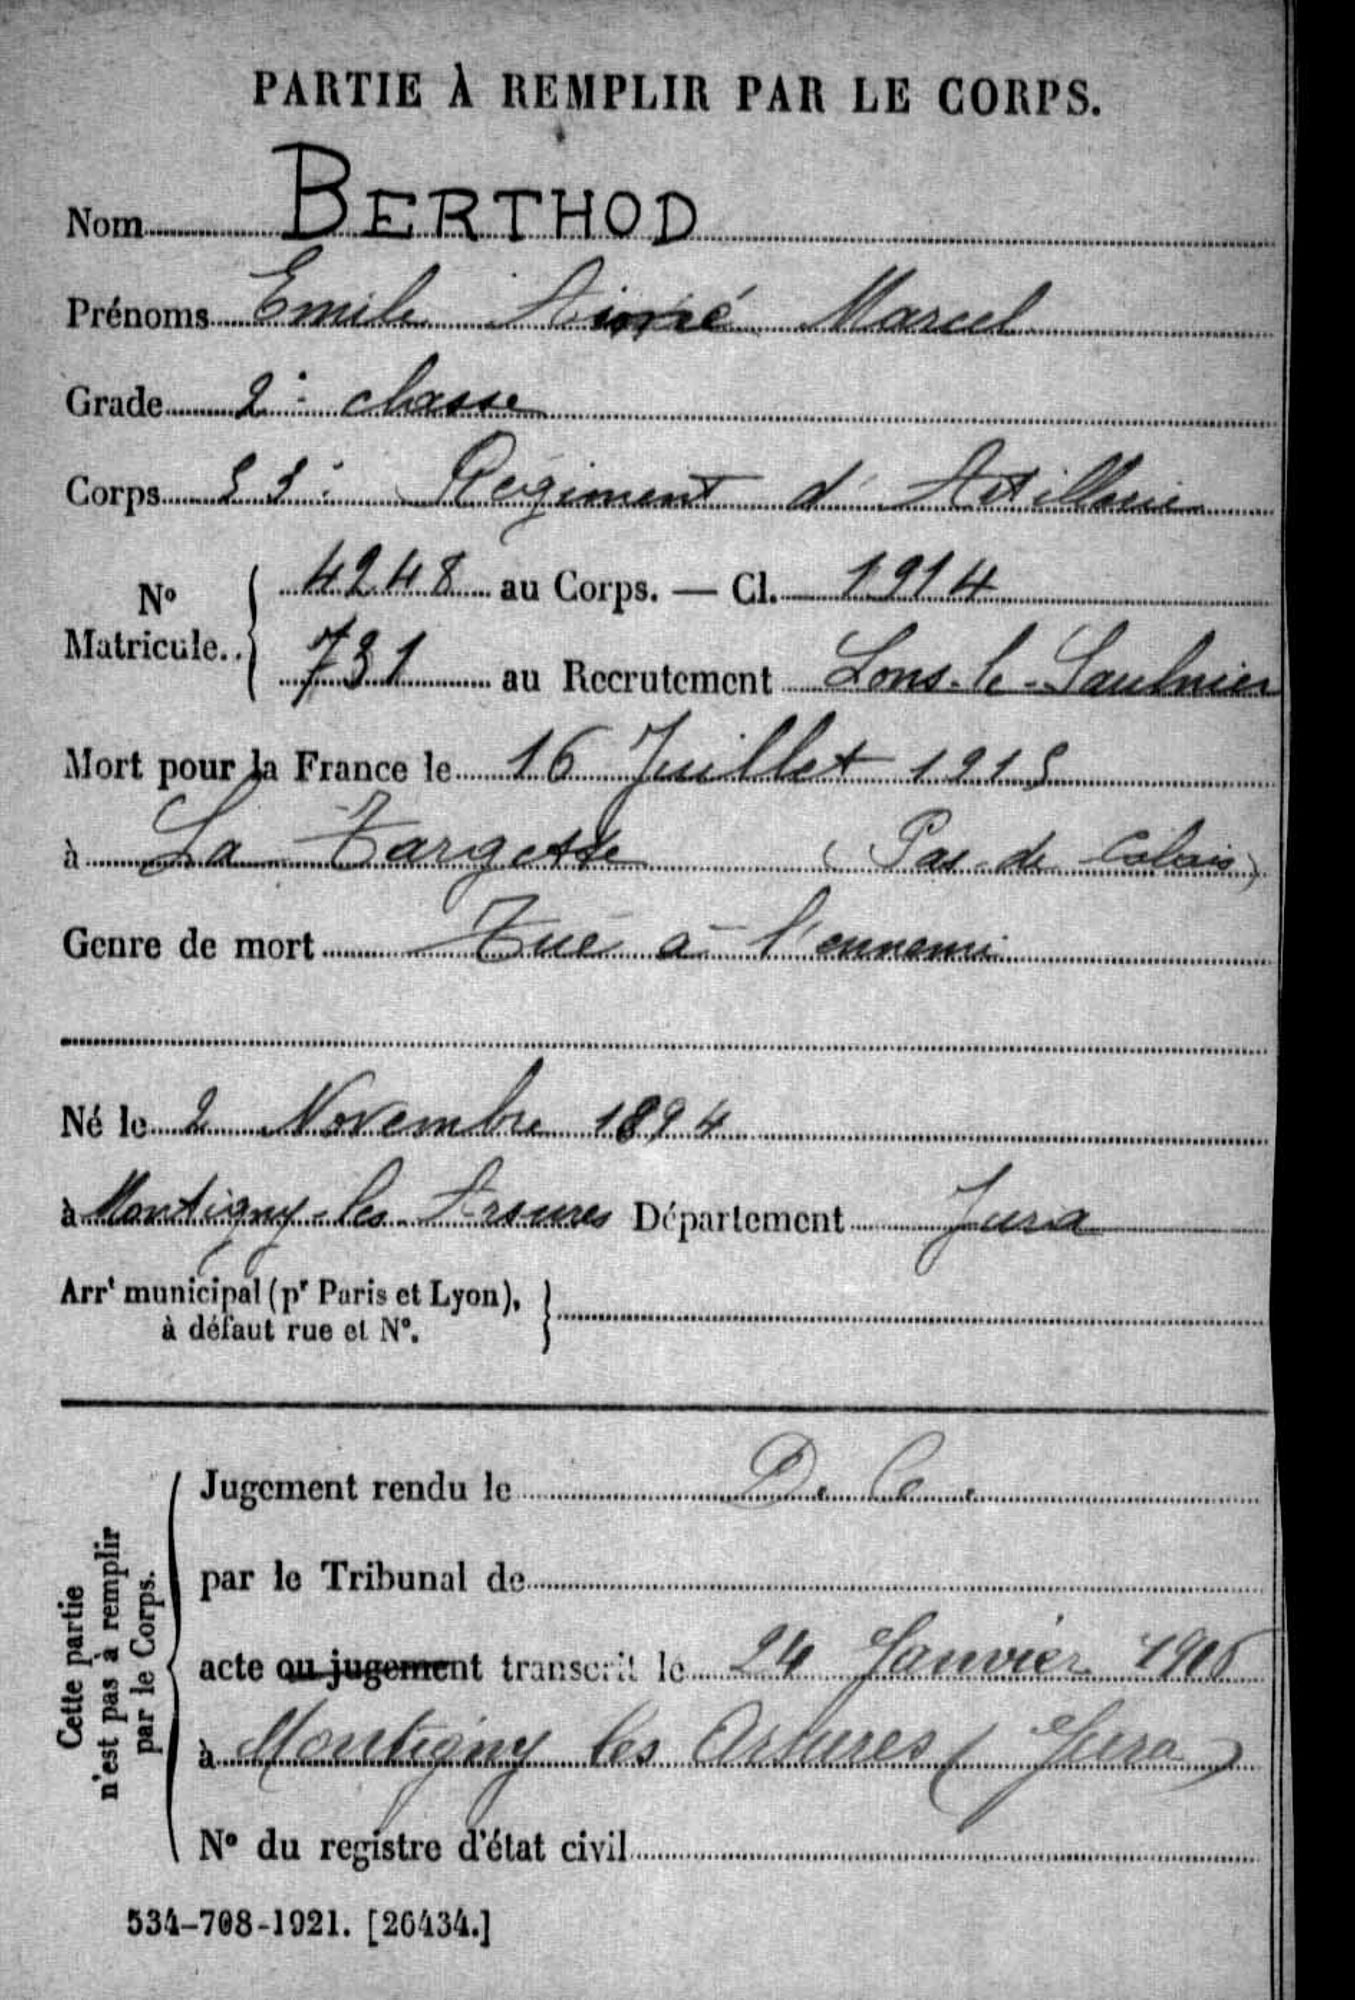 PARTIE À REMPLIR PAR LE CORPS.
Nom BERTHOD
Prénoms Emile Aimé Marcel
Grade 2e classe
Corps 53e Régiment d'Artillerie
No Matricule.. 4248 au Corps. — Cl. 1914
731 au Recrutement Lons-le-Saulnier
Mort pour la France le 16 Juillet 1915
à La Targette (Pas-de Calais)
Genre de mort Tué à l'ennemi
Né le 2 Novembre 1894
à Montigny-les-Arsures Département Jura
Arrt municipal (pr Paris et Lyon),
à défaut rue et No.
Cette partie
n'est pas à remplir
par le Corps.
Jugement rendu le D. C.
par le Tribunal de
acte ou jugement transcrit le 24 Janvier
à Montigny les Arsures (Jura)
No du registre d'état civil
534-708-1921. [26434.]